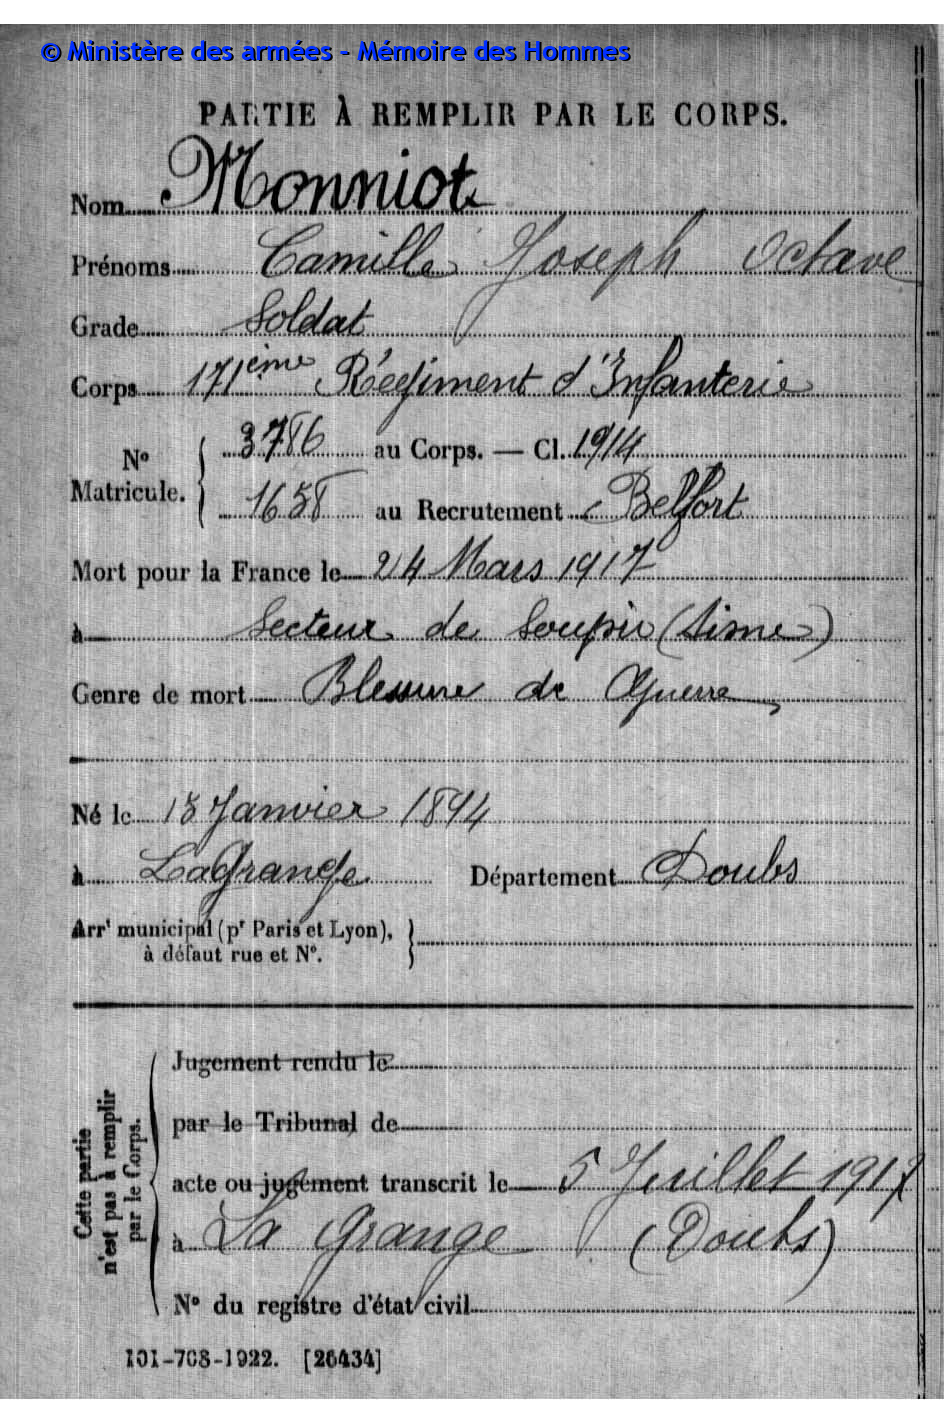 © Ministère des armées - Mémoire des Hommes
PARTIE À REMPLIR PAR LE CORPS.
Nom Monniot
Prénoms Camille Joseph Octave
Grade Soldat
Corps 171ème Régiment d'Infanterie
N° Matricule. { 3786 au Corps. — Cl. 1914
1658 au Recrutement Belfort
Mort pour la France le 24 Mars 1917
à Secteur de Soupir (Aisne)
Genre de mort Blessure de Guerre
Né le 15 Janvier 1894
à LaGrange Département Doubs
Arrt municipal (pr Paris et Lyon),
à défaut rue et N°.
Cette partie n'est pas à remplir par le Corps.
Jugement rendu le
par le Tribunal de
acte ou jugement transcrit le 5 Juillet 1917
à La Grange (Doubs)
N° du registre d'état civil
101-708-1922. [26434]